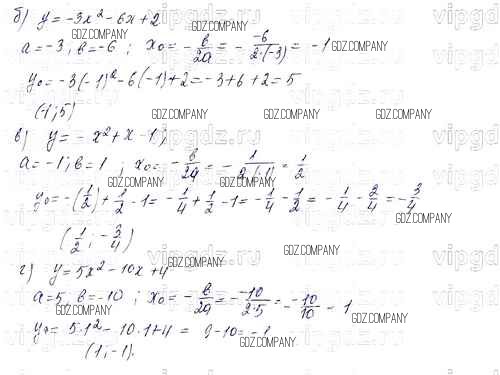 б) y = -3x² - 6x + 2
a = -3, в = -6 ; x₀ = - в/2a = - -6/2·(-3) = -1
y₀ = -3(-1)² - 6(-1) + 2 = -3 + 6 + 2 = 5
(-1; 5)
в) y = -x² + x - 1;
a = -1; в = 1 ; x₀ = - в/2a = - 1/2·(-1) = 1/2
y₀ = -(1/2) + 1/2 - 1 = -1/4 + 1/2 - 1 = -1/4 - 1/2 = -1/4 - 2/4 = -3/4
(1/2, -3/4)
г) y = 5x² - 10x + 4
a = 5, в = -10 ; x₀ = - в/2a = - -10/2·5 = - -10/10 = 1
y₀ = 5·1² - 10·1 + 4 = 9 - 10 = -1
(1, -1).
GDZ.COMPANY
vipgdz.ru